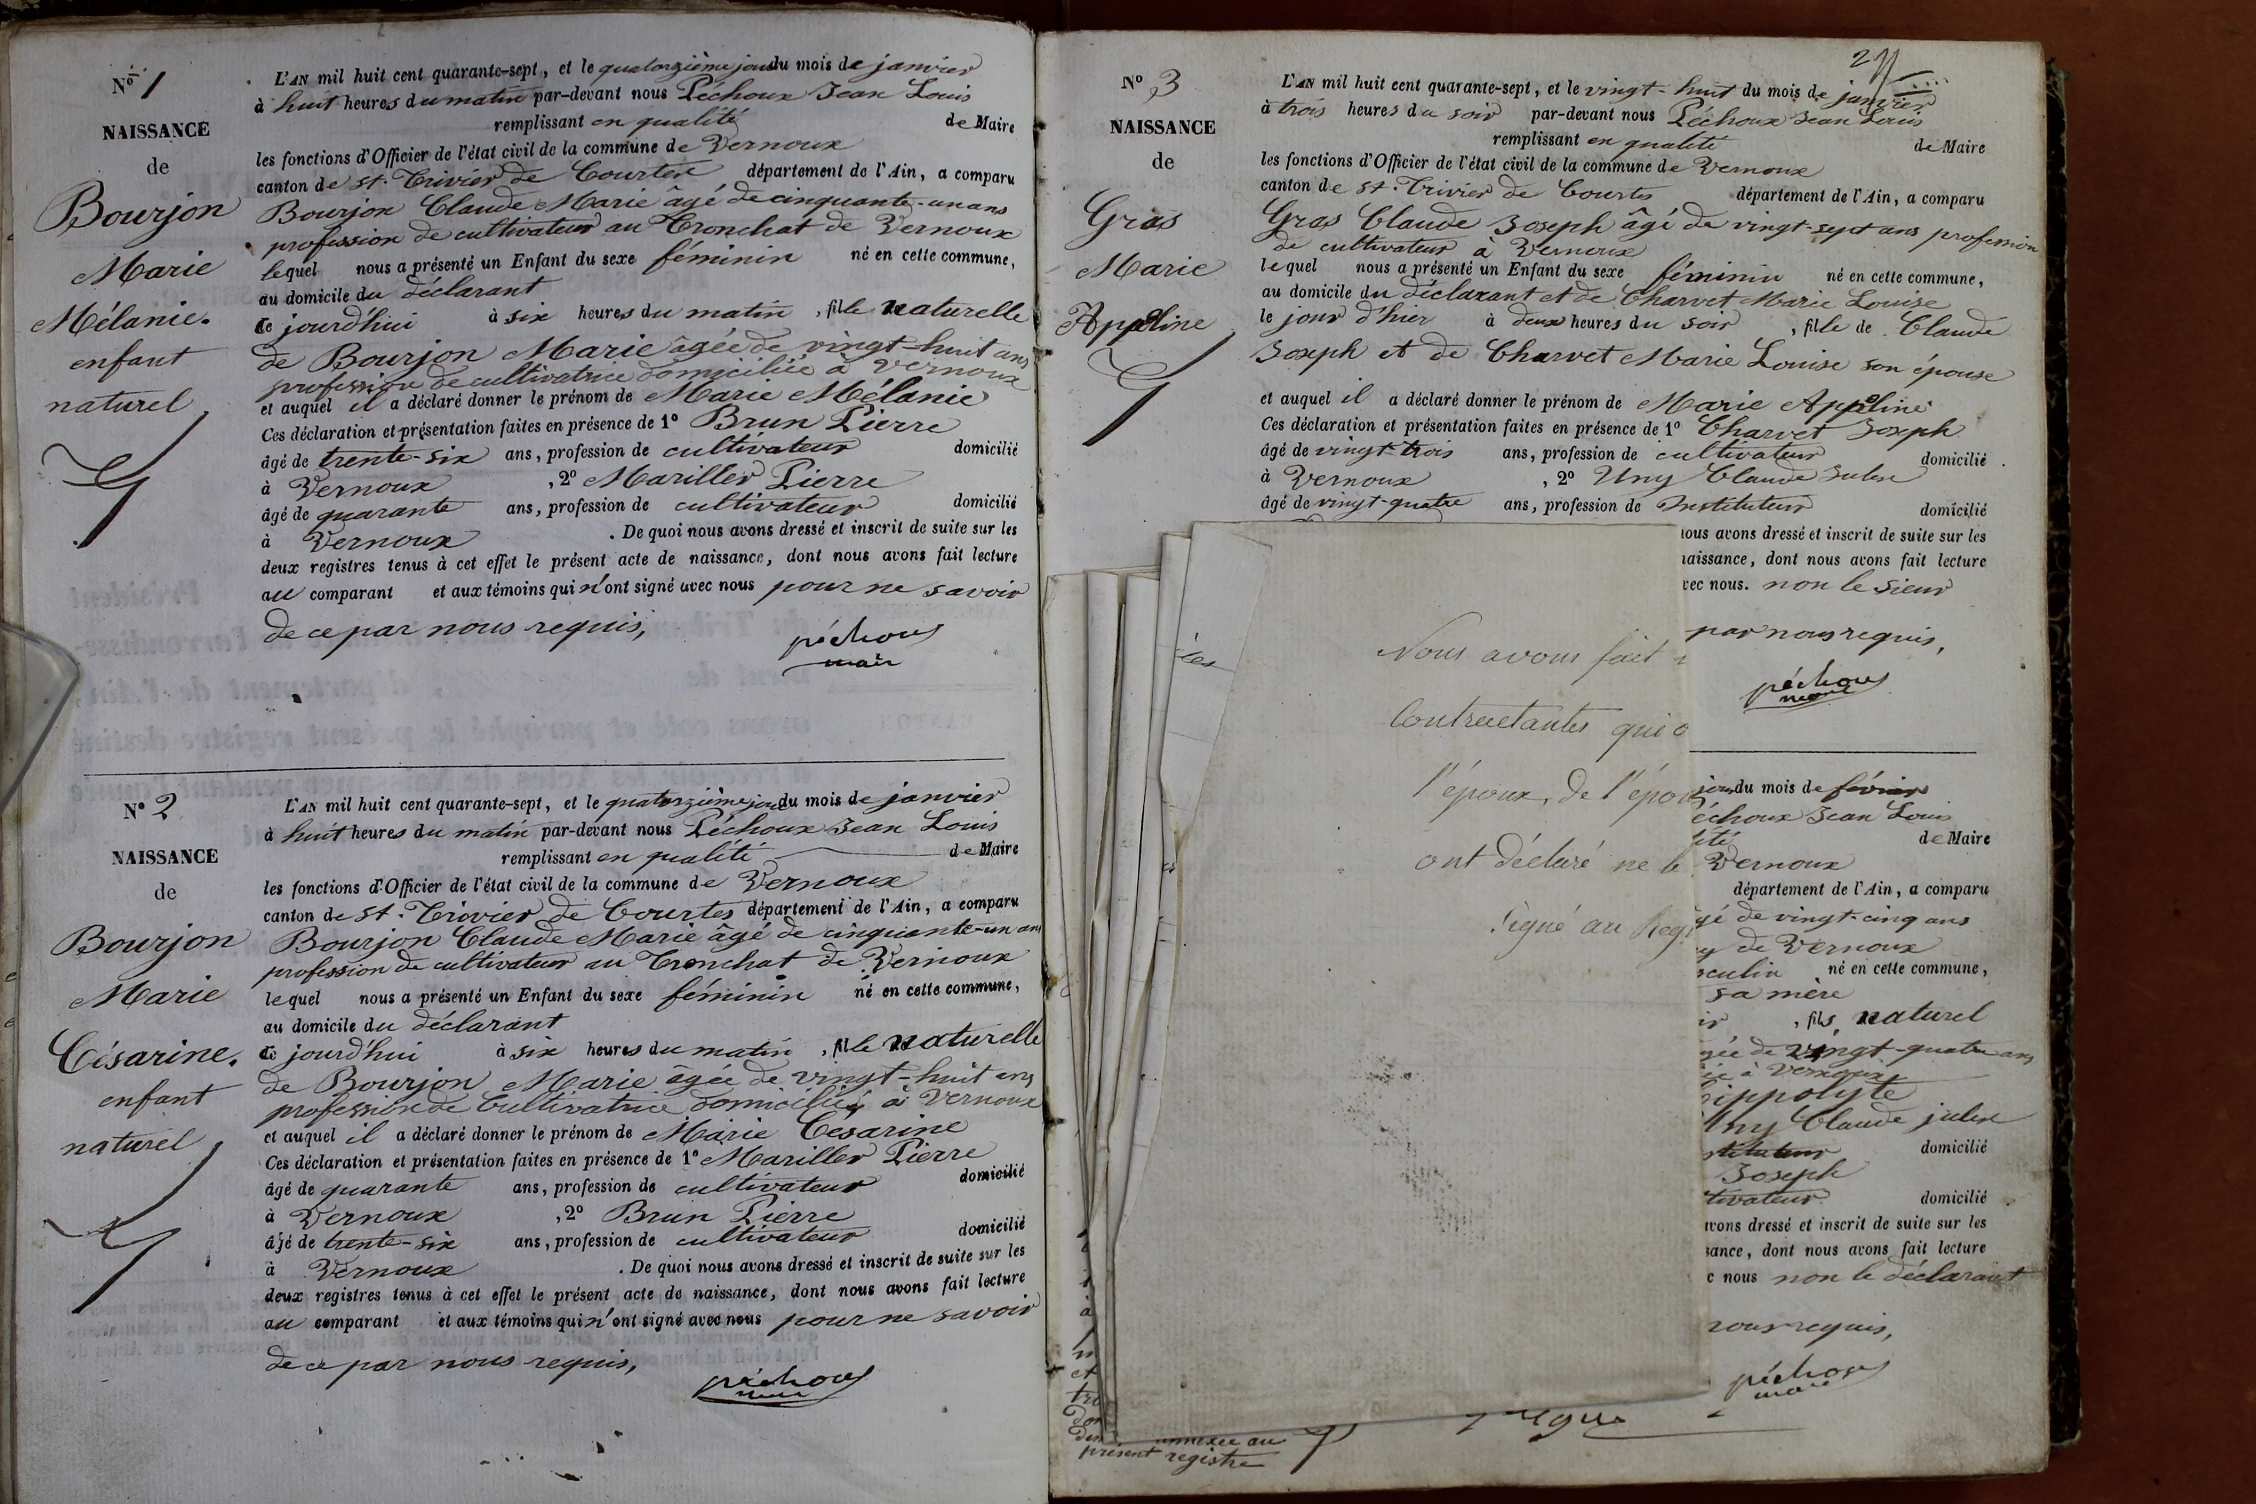 N° 1
NAISSANCE
de
Bourjon
Marie
Mélanie.
enfant
naturel
L'AN mil huit cent quarante-sept, et le quatorzième jour du mois de janvier
à huit heures du matin par-devant nous Péchoux Jean Louis
remplissant en qualité de Maire
les fonctions d'Officier de l'état civil de la commune de Vernoux
canton de St. Trivier de Courtes département de l'Ain, a comparu
Bourjon Claude Marie âgé de cinquante-un ans
profession de cultivateur au Tronchat de Vernoux
lequel nous a présenté un Enfant du sexe féminin né en cette commune,
au domicile du déclarant
ce jourd'hui à six heures du matin, fille naturelle
de Bourjon Marie âgée de vingt-huit ans
profession de cultivatrice domiciliée à Vernoux
et auquel il a déclaré donner le prénom de Marie Mélanie
Ces déclaration et présentation faites en présence de 1° Brun Pierre
âgé de trente-six ans, profession de cultivateur domicilié
à Vernoux, 2° Mariller Pierre
âgé de quarante ans, profession de cultivateur domicilié
à Vernoux. De quoi nous avons dressé et inscrit de suite sur les
deux registres tenus à cet effet le présent acte de naissance, dont nous avons fait lecture
au comparant et aux témoins qui n'ont signé avec nous pour ne savoir
de ce par nous requis,
péchoux
maire
N° 2
NAISSANCE
de
Bourjon
Marie
Césarine.
enfant
naturel
L'AN mil huit cent quarante-sept, et le quatorzième jour du mois de janvier
à huit heures du matin par-devant nous Péchoux Jean Louis
remplissant en qualité de Maire
les fonctions d'Officier de l'état civil de la commune de Vernoux
canton de St. Trivier de Courtes département de l'Ain, a comparu
Bourjon Claude Marie âgé de cinquante-un ans
profession de cultivateur au Tronchat de Vernoux
lequel nous a présenté un Enfant du sexe féminin né en cette commune,
au domicile du déclarant
ce jourd'hui à six heures du matin, fille naturelle
de Bourjon Marie âgée de vingt-huit ans
profession de Cultivatrice domiciliée à Vernoux
et auquel il a déclaré donner le prénom de Marie Césarine
Ces déclaration et présentation faites en présence de 1° Mariller Pierre
âgé de quarante ans, profession de cultivateur domicilié
à Vernoux, 2° Brun Pierre
âgé de trente-six ans, profession de cultivateur domicilié
à Vernoux. De quoi nous avons dressé et inscrit de suite sur les
deux registres tenus à cet effet le présent acte de naissance, dont nous avons fait lecture
au comparant et aux témoins qui n'ont signé avec nous pour ne savoir
de ce par nous requis,
péchoux
maire
N° 3
NAISSANCE
de
Gras
Marie
Appoline
L'AN mil huit cent quarante-sept, et le vingt-huit du mois de janvier
à trois heures du soir par-devant nous Péchoux Jean Louis
remplissant en qualité de Maire
les fonctions d'Officier de l'état civil de la commune de Vernoux
canton de St. Trivier de Courtes département de l'Ain, a comparu
Gras Claude Joseph âgé de vingt-sept ans profession
de cultivateur à Vernoux
lequel nous a présenté un Enfant du sexe féminin né en cette commune,
au domicile du déclarant et de Charvet Marie Louise
le jour d'hier à deux heures du soir, fille de Claude
Joseph et de Charvet Marie Louise son épouse
et auquel il a déclaré donner le prénom de Marie Appoline
Ces déclaration et présentation faites en présence de 1° Charvet Joseph
âgé de vingt-trois ans, profession de cultivateur domicilié
à Vernoux, 2° Uny Claude Julien
âgé de vingt-quatre ans, profession de Instituteur domicilié
nous avons dressé et inscrit de suite sur les
naissance, dont nous avons fait lecture
avec nous. non le sieur
par nous requis,
péchoux
maire
Nous avons fait
Contractantes qui o
l'époux, de l'épou
ont déclaré ne le
Signé au Reg
jour du mois de février
Péchoux Jean Louis
de Maire
Vernoux
département de l'Ain, a comparu
âgé de vingt-cinq ans
de Vernoux
masculin né en cette commune,
sa mère
, fils naturel
âgée de vingt-quatre ans
à Vernoux
hippolyte
Uny Claude julien
stituteur domicilié
Joseph
tivateur domicilié
avons dressé et inscrit de suite sur les
sance, dont nous avons fait lecture
c nous non le déclarant
nous requis,
péchoux
maire
annexée au
présent registre